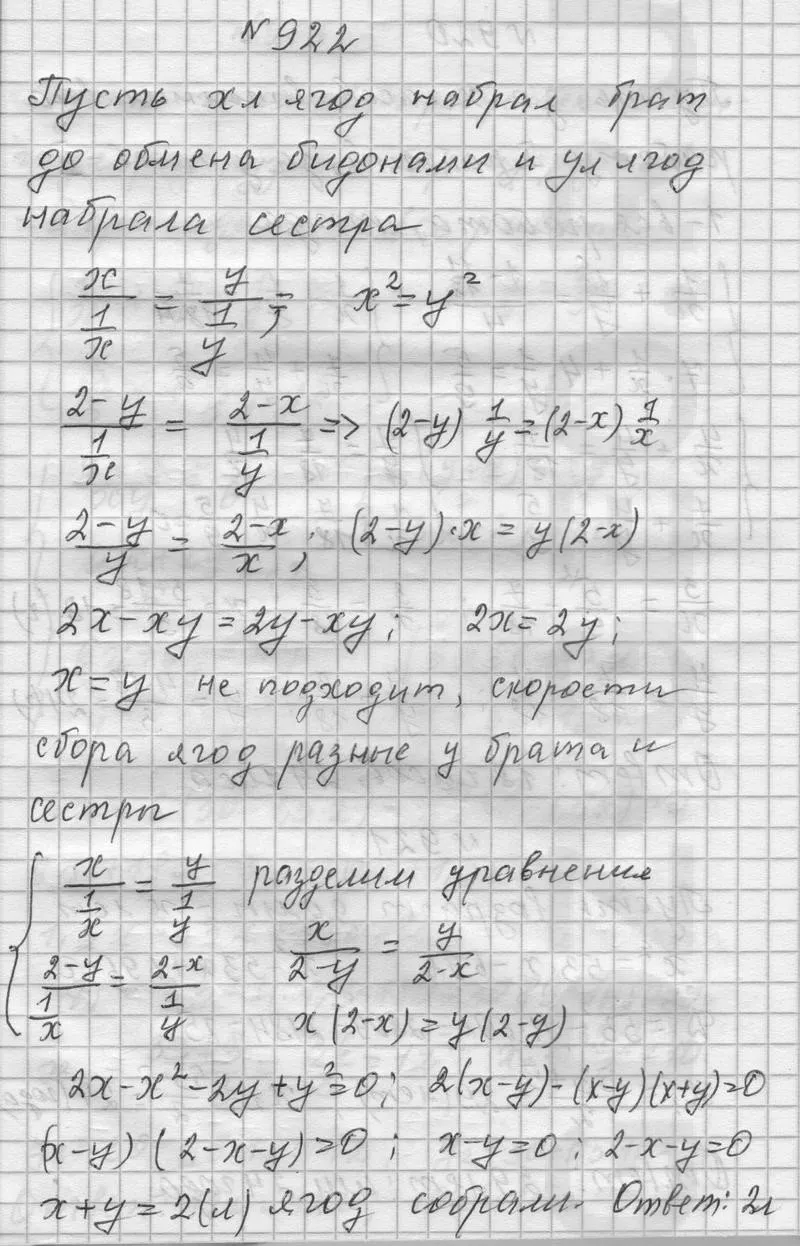 №922
Пусть x л ягод набрал брат
до обмена бидонами и y л ягод
набрала сестра
x/(1/x) = y/(1/y); x² = y²
(2-y)/(1/x) = (2-x)/(1/y) => (2-y) 1/y = (2-x) 1/x
(2-y)/y = (2-x)/x; (2-y)·x = y(2-x)
2x-xy=2y-xy; 2x=2y;
x=y не подходит, скорости
сбора ягод разные у брата и
сестры
{ x/(1/x) = y/(1/y) разделим уравнения
(2-y)/(1/x) = (2-x)/(1/y) x/(2-y) = y/(2-x)
x(2-x)=y(2-y)
2x-x²-2y+y²=0; 2(x-y)-(x-y)(x+y)=0
(x-y)(2-x-y)=0; x-y=0; 2-x-y=0
x+y=2(л) ягод собрали. Ответ: 2л